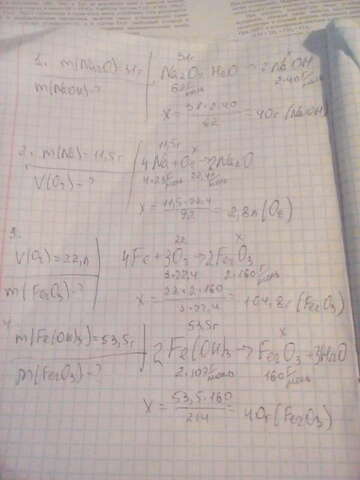 1. m(Na₂O)=31г
m(NaOH)-?
31г
Na₂O + H₂O → 2NaOH
62 г/моль 2·40 г/моль
x = 31·2·40 / 62 = 40г (NaOH)
2. m(Na)=11,5г
V(O₂)-?
11,5г x
4Na + O₂ → 2Na₂O
4·23 г/моль 22,4
x = 11,5·22,4 / 92 = 2,8л (O₂)
3.
V(O₂)=22л
m(Fe₂O₃)-?
22 x
4Fe + 3O₂ → 2Fe₂O₃
3·22,4 2·160 г/моль
x = 22·2·160 / 3·22,4 = 104,8г (Fe₂O₃)
4.
m(Fe(OH)₃)=53,5г
m(Fe₂O₃)-?
53,5г x
2Fe(OH)₃ → Fe₂O₃ + 3H₂O
2·107 г/моль 160 г/моль
x = 53,5·160 / 214 = 40г (Fe₂O₃)